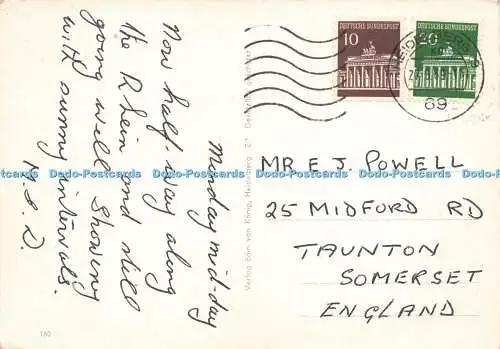 Monday mid-day
Now half-way along
the Rhein and still
going well. Showery
with sunny intervals.
DEUTSCHE BUNDESPOST
10
DEUTSCHE BUNDESPOST
20
HEIDELBERG
69
MR E J. POWELL
25 MIDFORD RD
TAUNTON
SOMERSET
ENGLAND
Verlag Edm. von König, Heidelberg
160
Dodo-Postcards Dodo-Postcards Dodo-Postcards Dodo-Postcards Dodo-Postcards